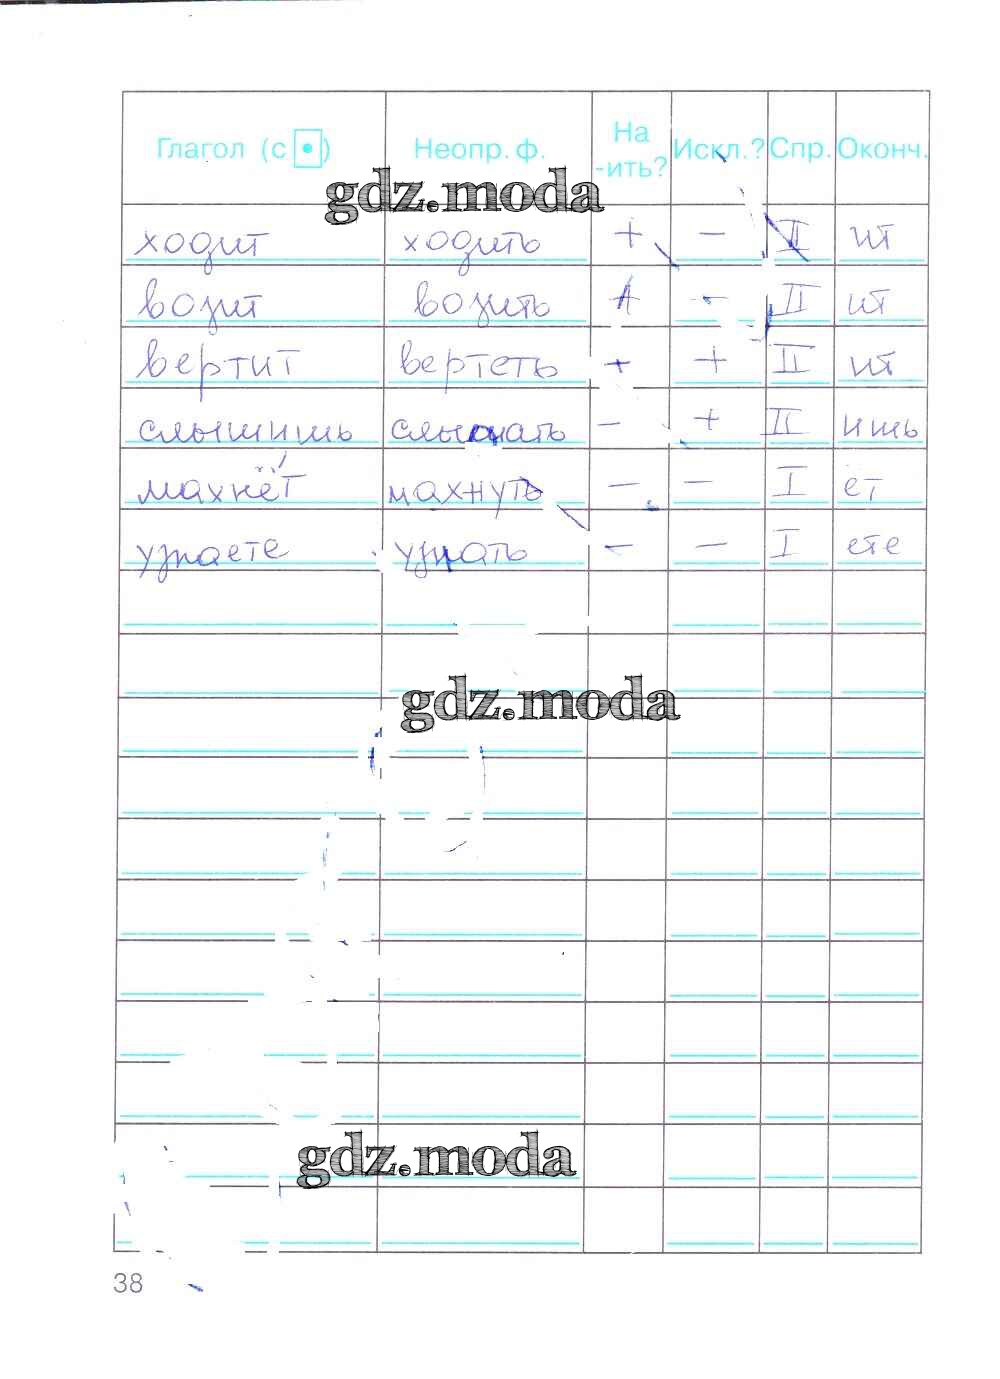 Глагол (с •) Неопр. ф. На -ить? Искл.? Спр. Оконч.
gdz.moda
ходит ходить + − II ит
возит возить + − II ит
вертит вертеть + + II ит
слышишь слышать − + II ишь
махнёт махнуть − − I ёт
узнаете узнать − − I ете
gdz.moda
gdz.moda
38